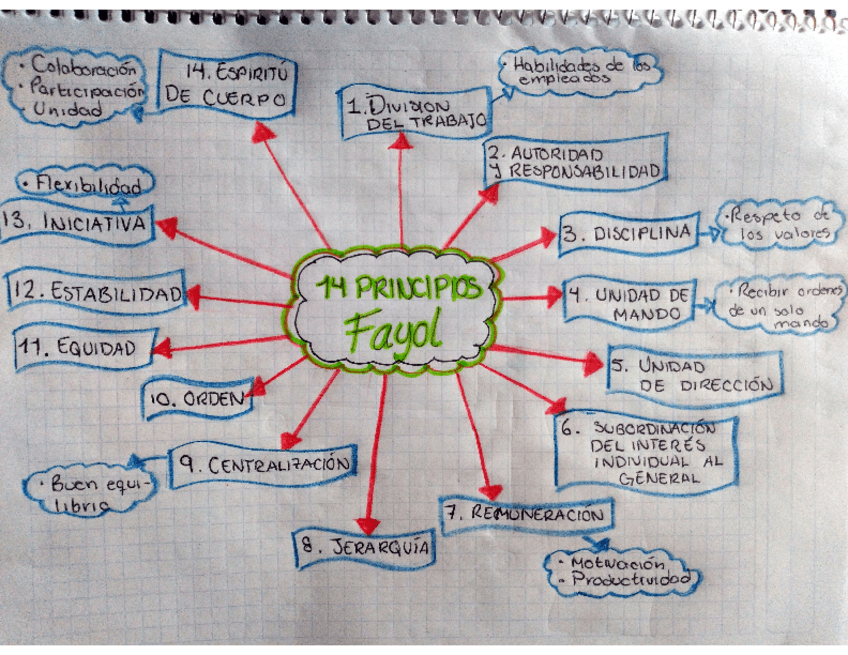 14 PRINCIPIOS
Fayol
1. DIVISION
DEL TRABAJO
• Habilidades de los
empleados
2. AUTORIDAD
y RESPONSABILIDAD
3. DISCIPLINA
• Respeto de
los valores
4. UNIDAD DE
MANDO
• Recibir ordenes
de un solo
mando
5. UNIDAD
DE DIRECCIÓN
6. SUBORDINACIÓN
DEL INTERÉS
INDIVIDUAL AL
GENERAL
7. REMUNERACIÓN
• Motivación
• Productividad
8. JERARQUÍA
9. CENTRALIZACIÓN
• Buen equi-
librio
10. ORDEN
11. EQUIDAD
12. ESTABILIDAD
13. INICIATIVA
• Flexibilidad
14. ESPIRITÚ
DE CUERPO
• Colaboración
• Participación
• Unidad